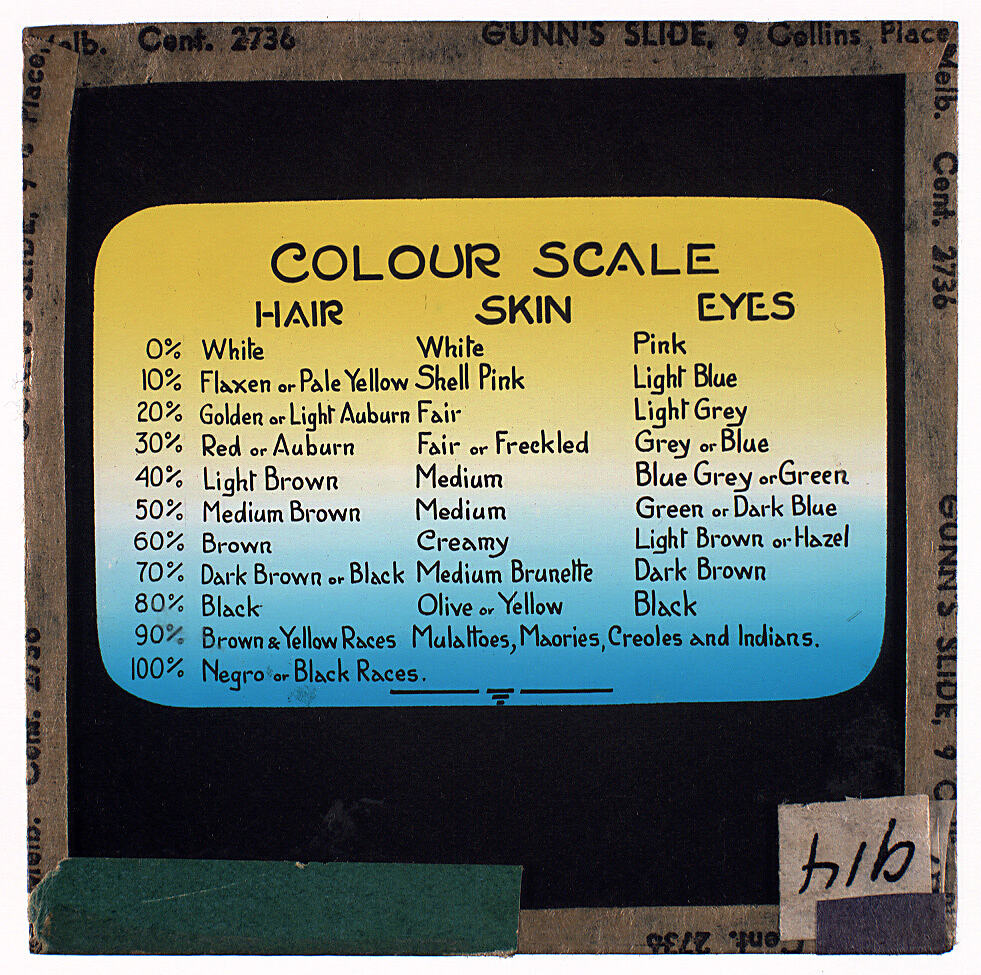 Melb. Cent. 2736 GUNN'S SLIDE, 9 Collins Place
COLOUR SCALE
HAIR SKIN EYES
0% White White Pink
10% Flaxen or Pale Yellow Shell Pink Light Blue
20% Golden or Light Auburn Fair Light Grey
30% Red or Auburn Fair or Freckled Grey or Blue
40% Light Brown Medium Blue Grey or Green
50% Medium Brown Medium Green or Dark Blue
60% Brown Creamy Light Brown or Hazel
70% Dark Brown or Black Medium Brunette Dark Brown
80% Black Olive or Yellow Black
90% Brown & Yellow Races Mulattoes, Maories, Creoles and Indians.
100% Negro or Black Races.
Melb. Cent. 2736
GUNN'S SLIDE, 9
Cent. 2736